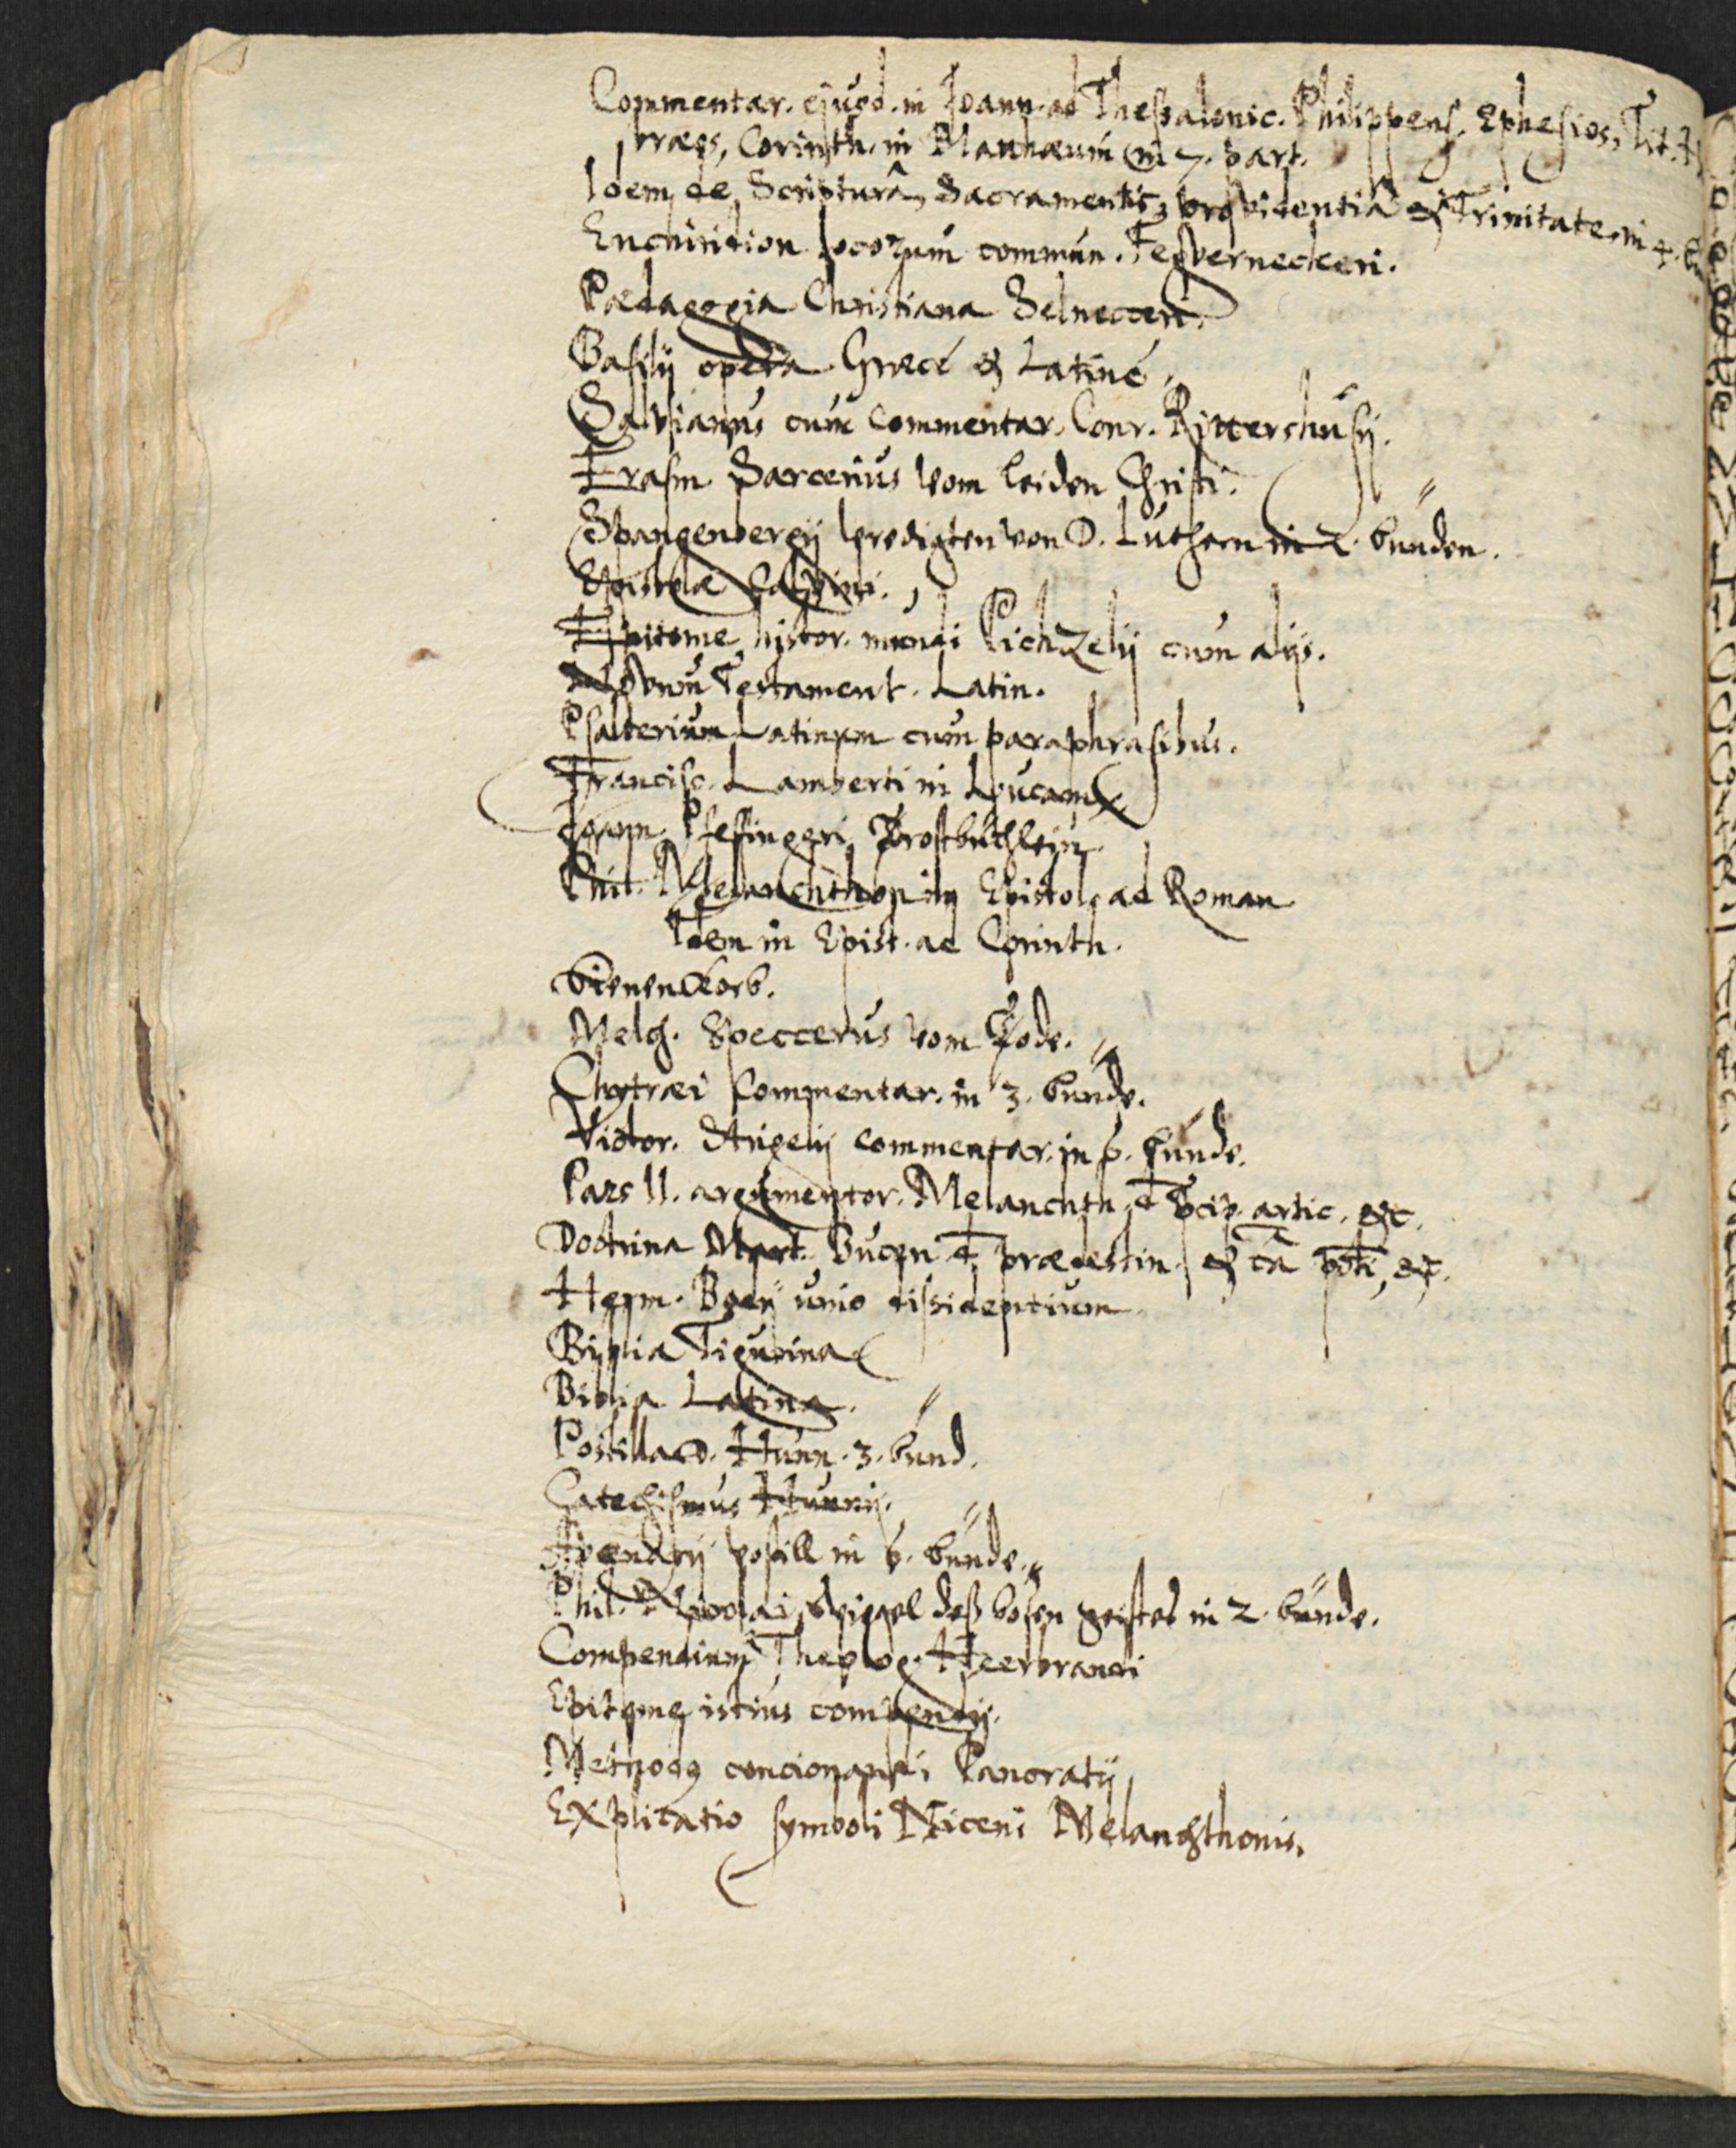 Commentar. ejusd. in Joann. ad Thessalonic. Philippens. Ephesios, Tit.
bræos, Corinth. in Matthæum in 7. part.
Idem de Scripturâ, Sacramentis, providentiâ & Trinitate, in 4.
Enchiridion locorum commun. Feswerneckeri.
Pædagogia Christiana Selnecceri.
Basilij opera Græcè & Latinè.
Salvianus cum Commentar. Conr. Rittershusij.
Erasm. Sarcerius vom leiden Christi.
Spangenbergij predigten von D. Luthern in 2. bunden.
Epistolæ Calvini.
Epitome histor. mundi Pichzelij cum alijs.
Novum Testament. Latin.
Psalterium Latinum cum paraphrasibus.
Francisc. Lamberti in Lucam
Joann. Pfeffingeri Trostbüchlein
Phil. Melanchthon in Epistol. ad Roman
Idem in Epist. ad Corinth.
Bienenkorb.
Melch. Speccerus vom Tode.
Chytræi Commentar. in 3. bunde.
Victor. Strigelij commentar. in 6. bunde.
Pars II. argumentor. Melanchth. de pcip. artic. &c.
Doctrina Mart. Buceri de prædestin. & cā pcti, &c.
Herm. Bodij unio dissidentium
Biblia Tigurina
Biblia Latina.
Postilla D. Hunn. 3. bund.
Catechismus Hunnij.
Avenarij postill in 6. bunde.
Phil. Nicolai Spiegel deß bösen geistes in 2. bünde.
Compendium Theolog. Heerbrandi
Epitome istius compendij.
Methodq concionandi Pancratij
Explicatio symboli Niceni Melanchthonis.